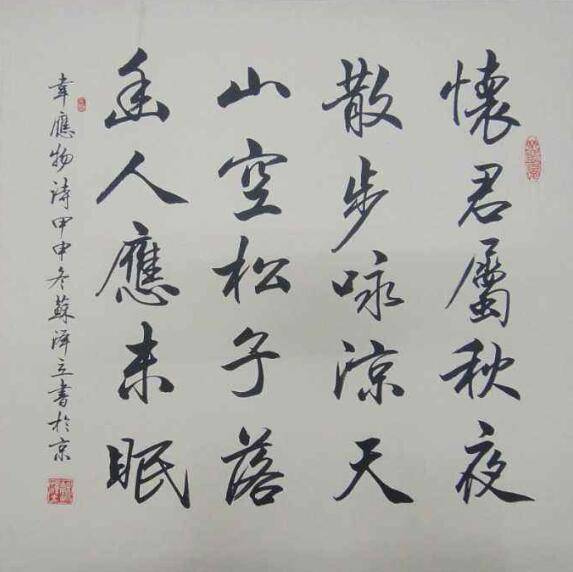 懷君屬秋夜
散步咏涼天
山空松子落
幽人應未眠
韋應物詩甲申冬蘇澤立書於京